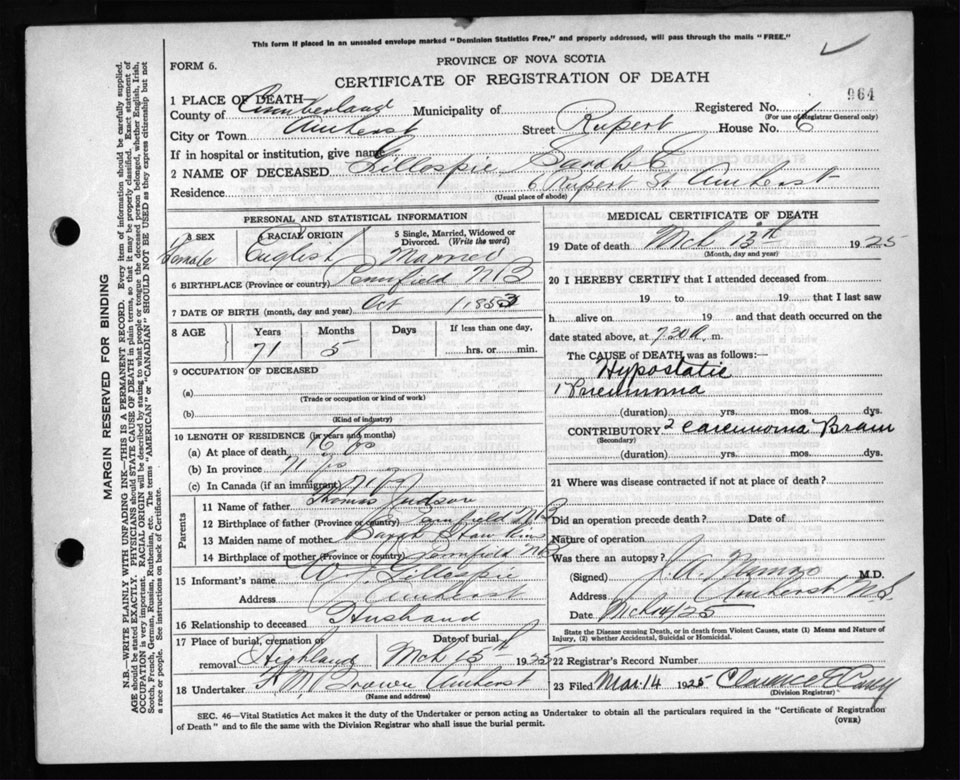 This form if placed in an unsealed envelope marked "Dominion Statistics Free," and properly addressed, will pass through the mails "FREE."
FORM 6.
PROVINCE OF NOVA SCOTIA
CERTIFICATE OF REGISTRATION OF DEATH
964
1 PLACE OF DEATH—
County of Cumberland Municipality of Registered No.
(For use of Registrar General only)
City or Town Amherst Street Rupert House No. 6
If in hospital or institution, give name
2 NAME OF DECEASED Gillespie Sarah E
Residence 6 Rupert St Amherst
(Usual place of abode)
PERSONAL AND STATISTICAL INFORMATION
3 SEX 4 RACIAL ORIGIN 5 Single, Married, Widowed or Divorced. (Write the word)
Female English Married
6 BIRTHPLACE (Province or country) Pennfield NB
7 DATE OF BIRTH (month, day and year) Oct 1853
8 AGE Years Months Days If less than one day,
71 5 hrs. or min.
9 OCCUPATION OF DECEASED
(a)
(Trade or occupation or kind of work)
(b)
(Kind of industry)
10 LENGTH OF RESIDENCE (in years and months)
(a) At place of death yrs
(b) In province 71 yrs
(c) In Canada (if an immigrant) 71 yrs
Parents
11 Name of father Thomas Judson
12 Birthplace of father (Province or country) Pennfield NB
13 Maiden name of mother
14 Birthplace of mother (Province or country) Pennfield NB
15 Informant's name Gillespie
Address Amherst
16 Relationship to deceased Husband
17 Place of burial, cremation or removal Highland Date of burial Mch 15th 1925
18 Undertaker Brown Amherst
(Name and address)
MEDICAL CERTIFICATE OF DEATH
19 Date of death Mch 13th 1925
(Month, day and year)
20 I HEREBY CERTIFY that I attended deceased from
19 to 19 that I last saw
h alive on 19 and that death occurred on the
date stated above, at 7.30 a. m.
The CAUSE of DEATH was as follows:—
Hypostatic
1 Pneumonia
(duration) yrs. mos. dys.
CONTRIBUTORY 2 Carcinoma Brain
(Secondary)
(duration) yrs. mos. dys.
21 Where was disease contracted if not at place of death?
Did an operation precede death? Date of
Nature of operation
Was there an autopsy?
(Signed) J. A. Munro M.D.
Address Amherst N.S.
Date Mch 14/25
State the Disease causing Death, or in death from Violent Causes, state (1) Means and Nature of Injury, (2) whether Accidental, Suicidal or Homicidal.
22 Registrar's Record Number
23 Filed Mar. 14 1925 Clarence E Casey
(Division Registrar)
SEC. 46—Vital Statistics Act makes it the duty of the Undertaker or person acting as Undertaker to obtain all the particulars required in the "Certificate of Registration
of Death" and to file the same with the Division Registrar who shall issue the burial permit.
(OVER)
MARGIN RESERVED FOR BINDING
N.B.—WRITE PLAINLY WITH UNFADING INK—THIS IS A PERMANENT RECORD. Every item of information should be carefully supplied.
AGE should be stated EXACTLY. PHYSICIANS should STATE CAUSE OF DEATH in plain terms, so that it may be properly classified. Exact statement of
OCCUPATION is very important. RACIAL ORIGIN will be described by stating to what people or tongue the deceased person belonged, whether English, Irish,
Scotch, French, German, Russian, Ruthenian, etc. The terms "AMERICAN" or "CANADIAN" SHOULD NOT BE USED as they express citizenship but not
a race or people. See instructions on back of Certificate.